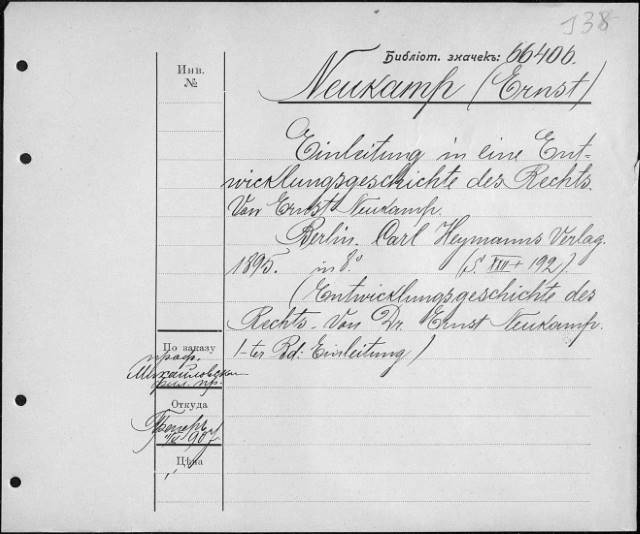 138
Библіот. значекъ: 66406.
Инв.
№
Neukamp (Ernst)
Einleitung in eine Ent-
wicklungsgeschichte des Rechts.
Von Ernst Neukamp.
Berlin. Carl Heymanns Verlag.
1895. in 8.° (S. XIII + 192).
(Entwicklungsgeschichte des
Rechts. Von Dr. Ernst Neukamp.
1-ter Bd: Einleitung)
По заказу
проф.
Михайловскаго
Откуда
907
Цѣна